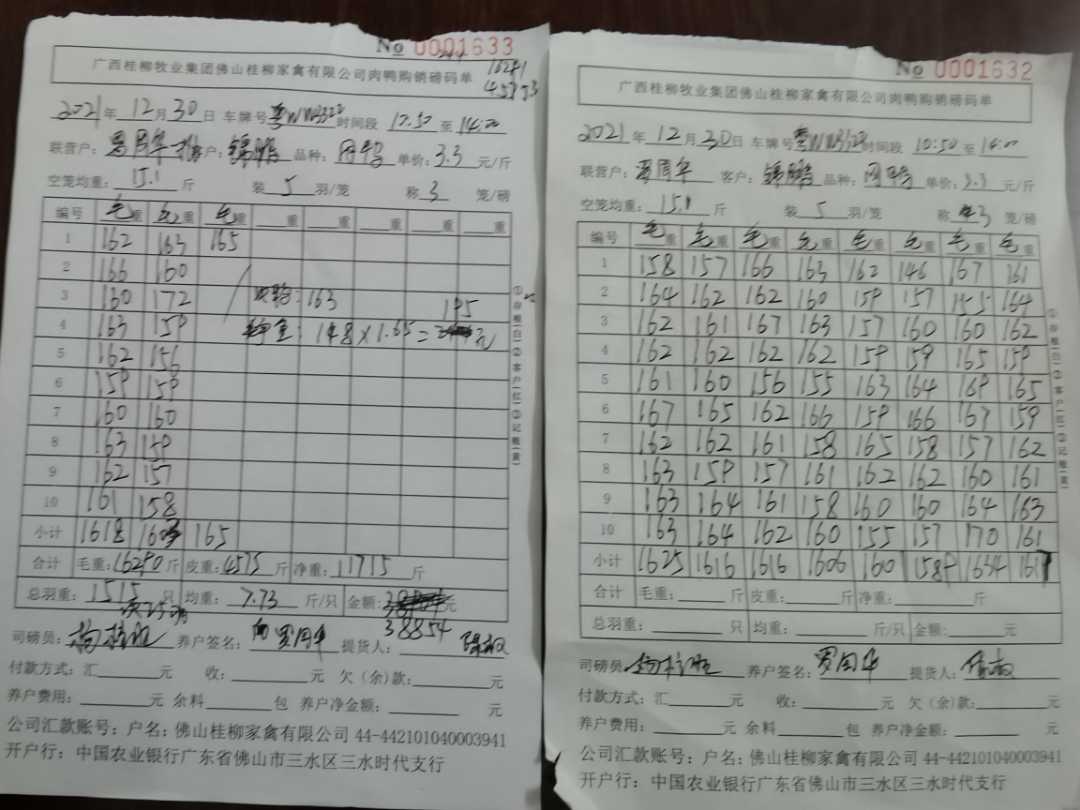 No 0001633
广西桂柳牧业集团佛山桂柳家禽有限公司肉鸭购销磅码单
2021年 12月 30日 车牌号 时间段 10:50 至 14:00
联营户: 客户: 锦鹏 品种: 单价: 3.3 元/斤
空笼均重: 15.1 斤 装 5 羽/笼 称 3 笼/磅
编号 毛重 毛重 毛重 重 重 重 重 重
1 162 163 165
2 166 160
3 160 172 次鸭: 163 195
4 163 159 148×1.65= 元
5 162 156
6 159 159
7 160 160
8 163 159
9 162 157
10 161 158
小计 1618 1603 165
合计 毛重: 16290 斤 皮重: 4575 斤 净重: 11715 斤
总羽重: 1515 只 均重: 7.73 斤/只 金额: 元
38854
司磅员: 养户签名: 罗周华 提货人:
付款方式: 汇 元 收: 元 欠(余)款: 元
养户费用: 元 余料 包 养户净金额: 元
公司汇款账号: 户名: 佛山桂柳家禽有限公司 44-442101040003941
开户行: 中国农业银行广东省佛山市三水区三水时代支行
①存根(白)②客户(红)③记账(黄)
No 0001632
广西桂柳牧业集团佛山桂柳家禽有限公司肉鸭购销磅码单
2021年 12月 30日 车牌号 时间段 10:50 至 14:00
联营户: 罗周华 客户: 锦鹏 品种: 单价: 3.3 元/斤
空笼均重: 15.1 斤 装 5 羽/笼 称 3 笼/磅
编号 毛重 毛重 毛重 毛重 毛重 毛重 毛重 毛重
1 158 157 166 163 162 146 167 161
2 164 162 162 160 159 157 155 164
3 162 161 167 163 157 160 160 162
4 162 162 162 162 159 159 165 159
5 161 160 156 155 163 164 169 165
6 167 165 162 166 159 166 167 159
7 162 162 161 158 165 158 157 162
8 163 159 157 161 162 162 160 161
9 163 164 161 158 160 160 164 163
10 163 164 162 160 155 157 170 161
小计 1625 1616 1616 1606 160 1589 1634 1617
合计 毛重: 斤 皮重: 斤 净重: 斤
总羽重: 只 均重: 斤/只 金额: 元
司磅员: 养户签名: 罗周华 提货人:
付款方式: 汇 元 收: 元 欠(余)款: 元
养户费用: 元 余料 包 养户净金额: 元
公司汇款账号: 户名: 佛山桂柳家禽有限公司 44-442101040003941
开户行: 中国农业银行广东省佛山市三水区三水时代支行
①存根(白)②客户(红)③记账(黄)